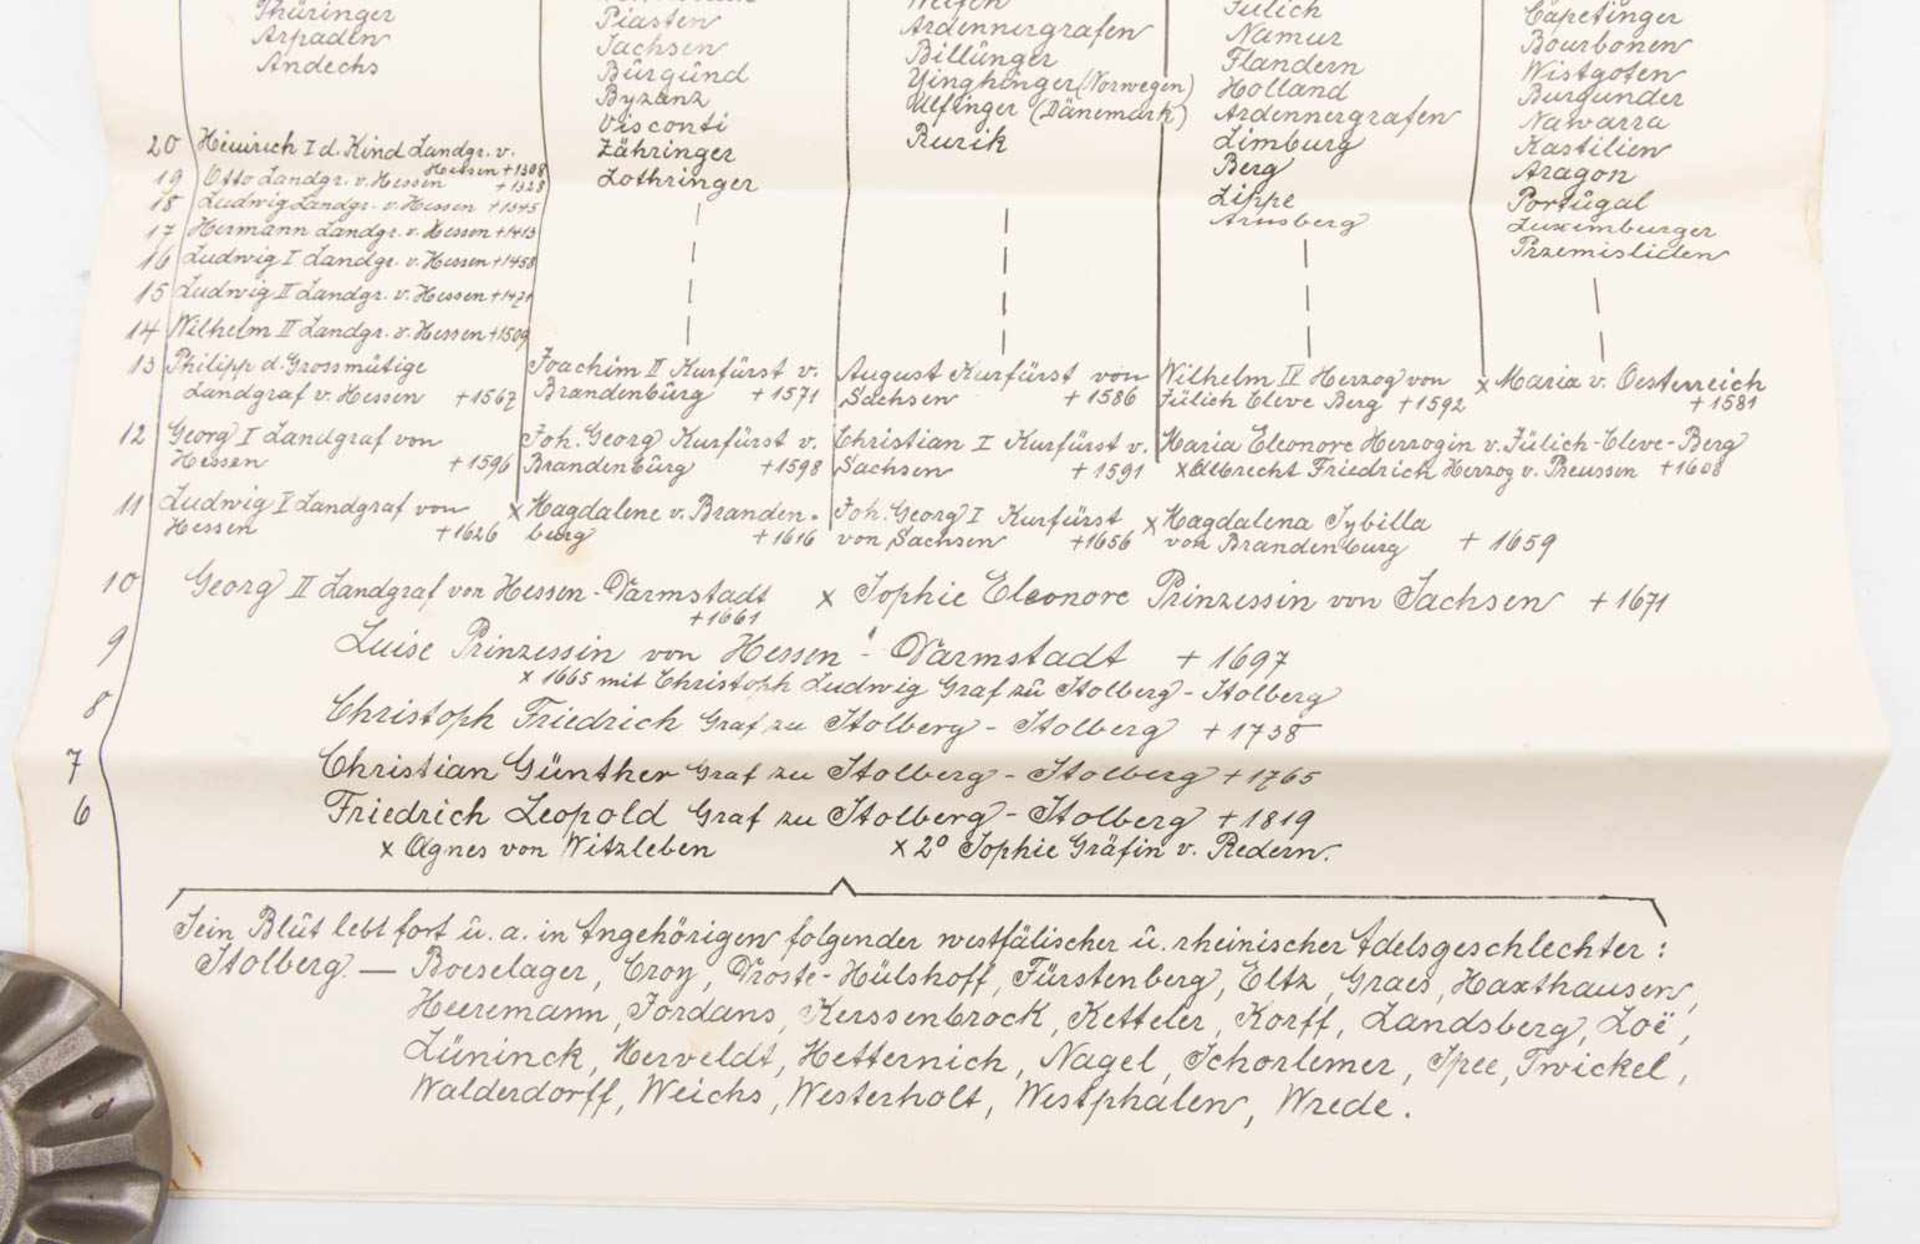 Thüringer
Arpaden
Andechs
Piasten
Sachsen
Burgund
Byzanz
Visconti
Zähringer
Lothringer
Welfen
Ardennergrafen
Billunger
Ynghinger (Norwegen)
Ulfinger (Dänemark)
Rurik
Jülich
Namur
Flandern
Holland
Ardennergrafen
Limburg
Berg
Lippe
Arnsberg
Capetinger
Bourbonen
Wistgoten
Burgunder
Navarra
Kastilien
Aragon
Portugal
Luxemburger
Przemisliden
20 Heinrich I d. Kind Landgr. v. Hessen +1308
19 Otto Landgr. v. Hessen +1328
18 Ludwig Landgr. v. Hessen +1345
17 Hermann Landgr. v. Hessen +1413
16 Ludwig I Landgr. v. Hessen +1458
15 Ludwig II Landgr. v. Hessen +1471
14 Wilhelm II Landgr. v. Hessen +1509
13 Philipp d. Grossmütige
Landgraf v. Hessen +1567
Joachim II Kurfürst v.
Brandenburg +1571
August Kurfürst von
Sachsen +1586
Wilhelm IV Herzog von
Jülich Cleve Berg +1592
x Maria v. Oesterreich
+1581
12 Georg I Landgraf von
Hessen +1596
Joh. Georg Kurfürst v.
Brandenburg +1598
Christian I Kurfürst v.
Sachsen +1591
Maria Eleonore Herzogin v. Jülich-Cleve-Berg
x Albrecht Friedrich Herzog v. Preussen +1608
11 Ludwig I Landgraf von
Hessen +1626
x Magdalene v. Branden-
burg +1616
Joh. Georg I Kurfürst
von Sachsen +1656
x Magdalena Sybilla
von Brandenburg +1659
10 Georg II Landgraf von Hessen-Darmstadt x Sophie Eleonore Prinzessin von Sachsen +1671
+1661
9 Luise Prinzessin von Hessen-Darmstadt +1697
x 1665 mit Christoph Ludwig Graf zu Stolberg-Stolberg
8 Christoph Friedrich Graf zu Stolberg-Stolberg +1738
7 Christian Günther Graf zu Stolberg-Stolberg +1765
6 Friedrich Leopold Graf zu Stolberg-Stolberg +1819
x Agnes von Witzleben x 2º Sophie Gräfin v. Redern.
Sein Blut lebt fort u. a. in Angehörigen folgender westfälischer u. rheinischer Adelsgeschlechter:
Stolberg. — Boeselager, Croy, Droste-Hülshoff, Fürstenberg, Eltz, Graes, Haxthausen,
Heeremann, Jordans, Kerssenbrock, Ketteler, Korff, Landsberg, Loë,
Lüninck, Merveldt, Metternich, Nagel, Schorlemer, Spee, Twickel,
Walderdorff, Weichs, Westerholt, Westphalen, Wrede.